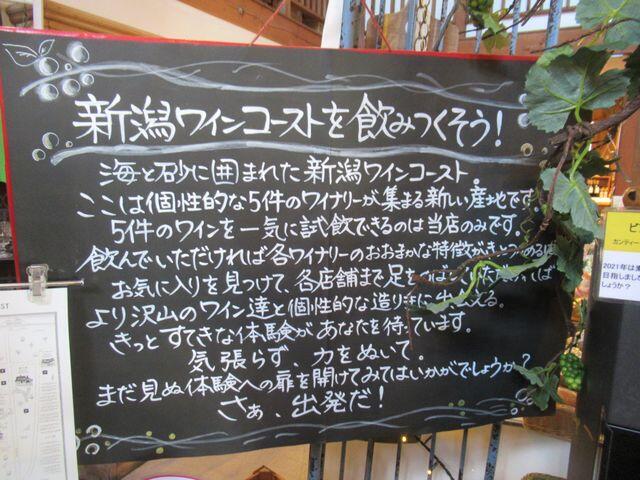 新潟ワインコーストを飲みつくそう!
海と砂に囲まれた新潟ワインコースト。
ここは個性的な5件のワイナリーが集まる新しい産地です。
5件のワインを一気に試飲できるのは当店のみです。
飲んでいただければ各ワイナリーのおおまかな特徴が
お気に入りを見つけて、各店舗まで足を
より沢山のワイン達と個性的な造り手に出会える。
きっとすてきな体験があなたを待っています。
気張らず 力をぬいて。
まだ見ぬ体験への扉を開けてみてはいかがでしょうか?
さぁ、出発だ!
ST
カンティー
2021年は
目指しまし
しょうか?